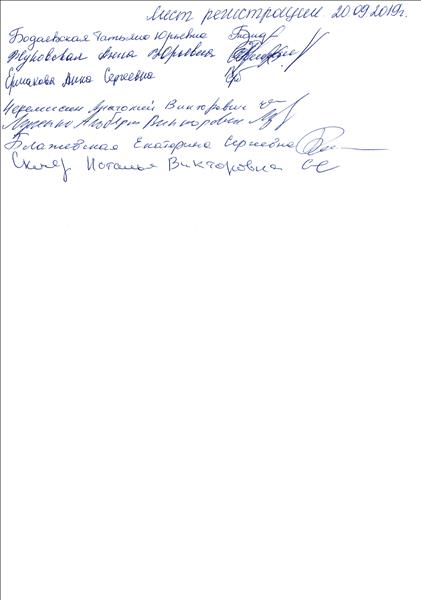 Лист регистрации 20.09.2019г.
Бодаевская Татьяна Юрьевна
Жуковская Анна Юрьевна
Ермакова Анна Сергеевна
Черемисин Анатолий Викторович
Альберт Викторович
Блажевская Екатерина Сергеевна
Наталья Викторовна